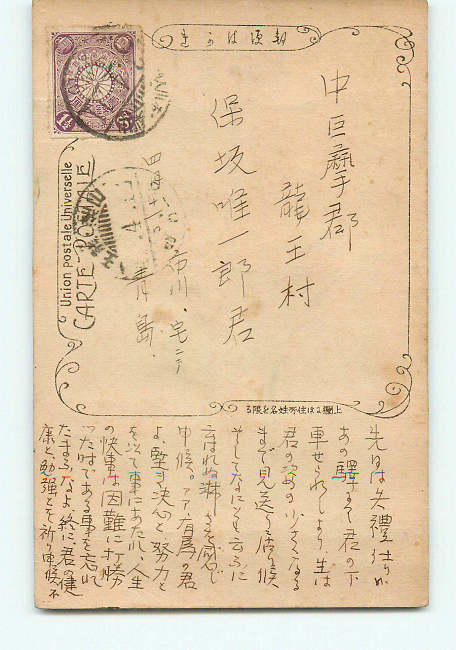 郵便はがき
Union postale Universelle
CARTE-POSTALE
中巨摩郡
龍王村
保坂唯一郎君
市川、宅ニテ
青島、
1½ Sn
上欄には住所姓名を限る
先日は失禮仕りが
あの驛にて君の下
車せられしより小生は
君の姿の小さくなる
まで見送り居り候
そしてなにとも云ふに
云はれぬ淋しさを感じ
申候。アヽ有為の君
よ、堅き決心と努力と
を以て事にあたれ、人生
の快事は困難に打勝
つた時である事を忘れ
たまふなよ、終に君の健
康と勉強とを祈り申候